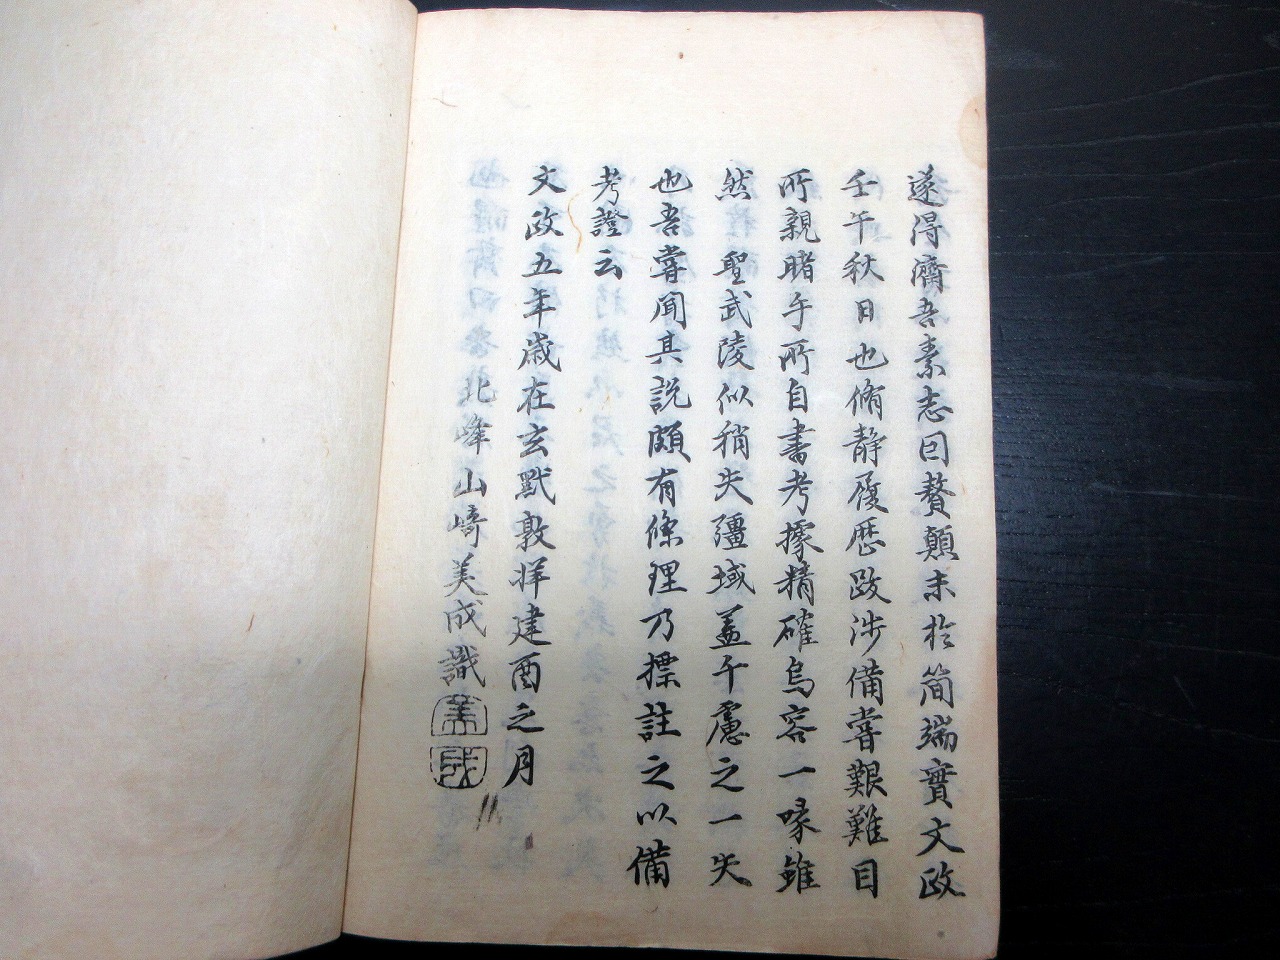 遂得濟吾素志因贅顛末於簡端實文政
壬午秋日也脩静履歴跋渉備嘗艱難目
所親睹手所自書考據精確烏容一喙雖
然 聖武陵似稍失疆域盖千慮之一失
也吾嘗聞其説頗有條理乃標註之以備
考證云
文政五年歳在玄黓敦牂建酉之月
北峰山﨑美成識
美
成